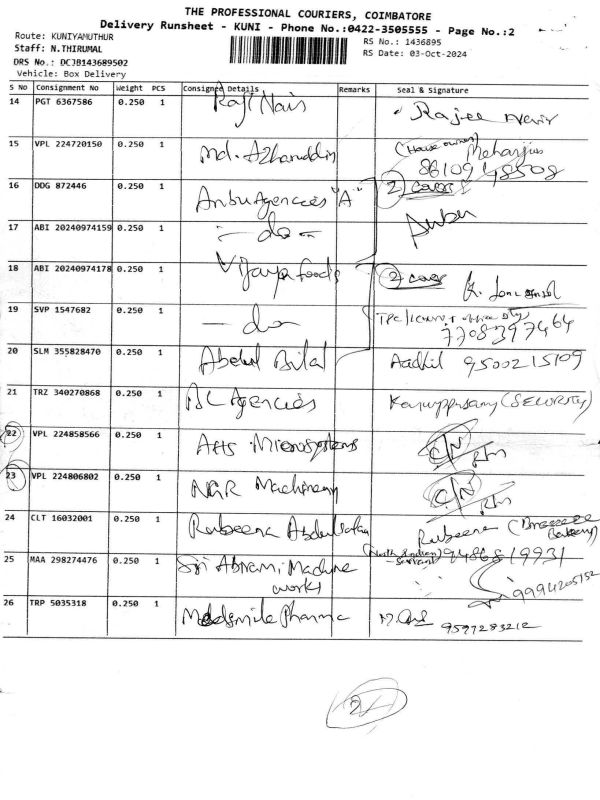 THE PROFESSIONAL COURIERS, COIMBATORE
Delivery Runsheet - KUNI - Phone No.:0422-3505555 - Page No.:2
Route: KUNIYAMUTHUR
RS No.: 1436895
Staff: N.THIRUMAL
RS Date: 03-Oct-2024
DRS No.: DCJB143689502
Vehicle: Box Delivery
S No Consignment No Weight PCS Consignee Details Remarks Seal & Signature
14 PGT 6367586 0.250 1 Raji Nair Rajee Nair
15 VPL 224720150 0.250 1 Md. Azharuddin (House owner)
8610948508
16 DDG 872446 0.250 1 Anbu Agencies "A" 2 cover
17 ABI 20240974159 0.250 1 - do - Anbu
18 ABI 20240974178 0.250 1 Vijaya foods 2 cover
19 SVP 1547682 0.250 1 - do -
7708397464
20 SLM 355828470 0.250 1 Abdul Bilal Aadhil 9500215109
21 TRZ 340270868 0.250 1 Agencies Karuppusamy (SECURITY)
22 VPL 224858566 0.250 1 Microsystems C/N
23 VPL 224806802 0.250 1 NGR Machinery C/N
24 CLT 16032001 0.250 1 Rubeena Rubeena
25 MAA 298274476 0.250 1 Sri Abrami Machine works (North Indian servant) 9486819931
9994205152
26 TRP 5035318 0.250 1 Medsmile Pharma 9597283212